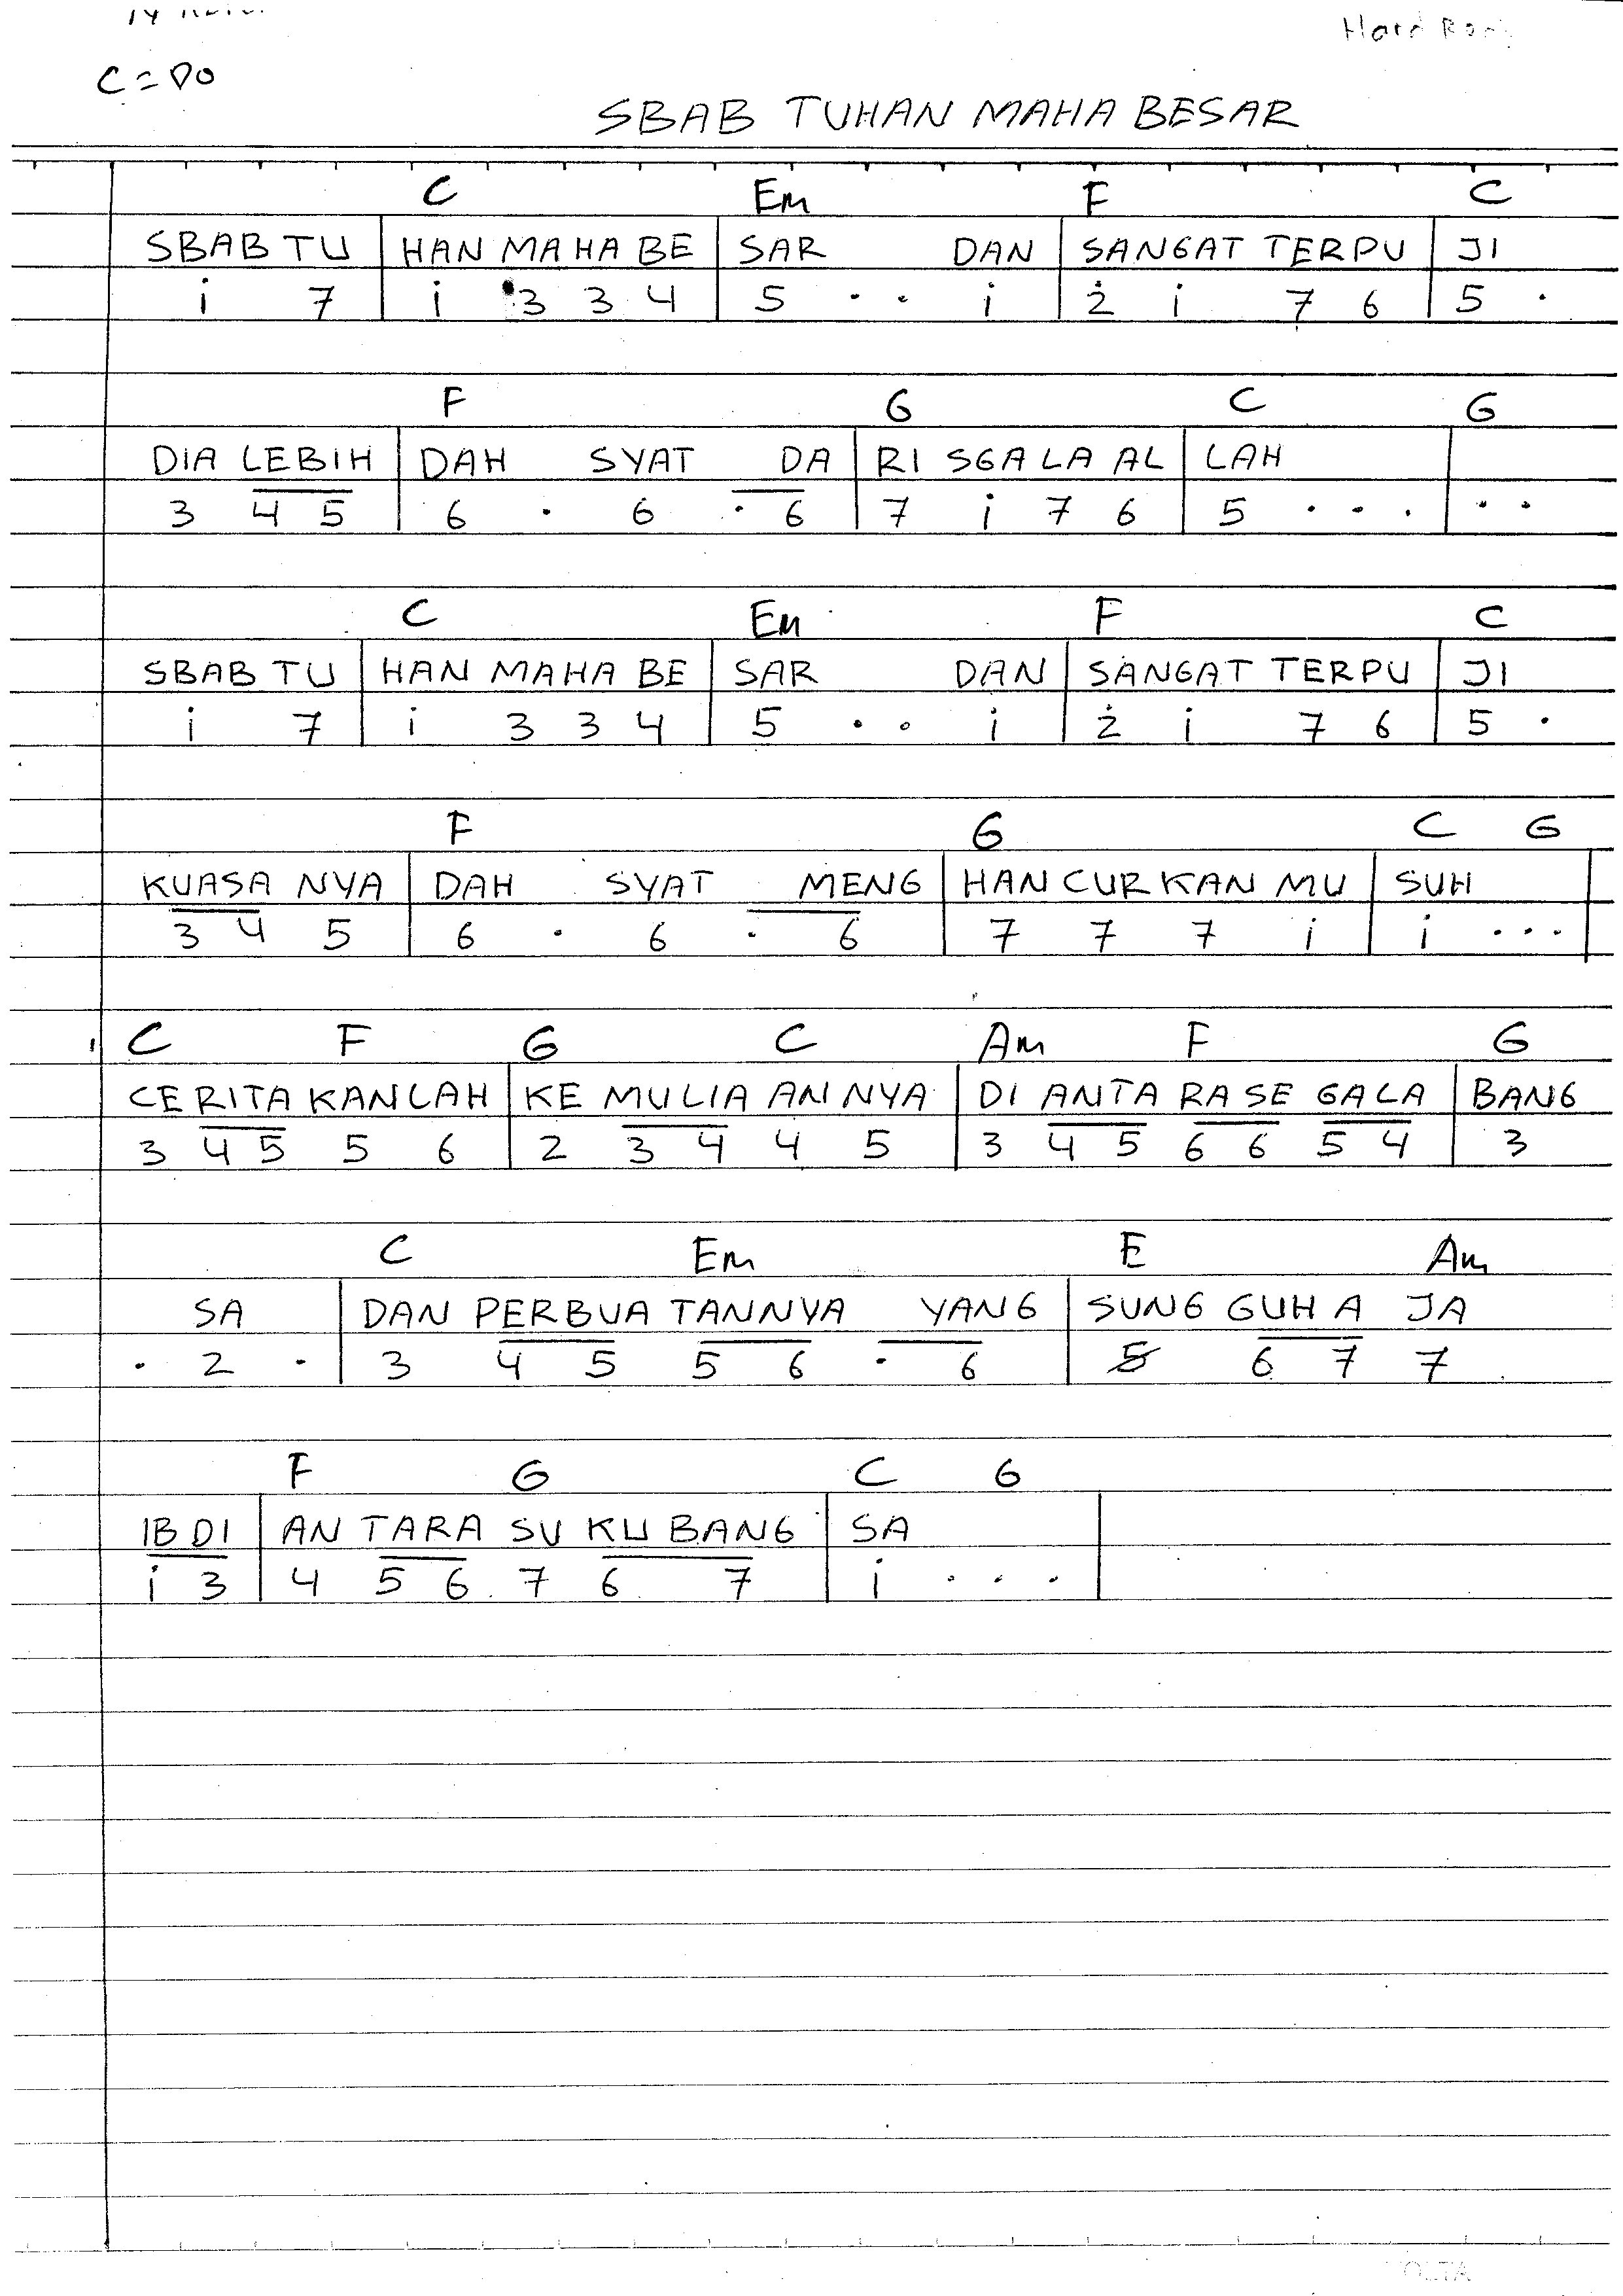 C = DO
SBAB TUHAN MAHA BESAR
C Em F C
SBAB TU | HAN MAHA BE | SAR DAN | SANGAT TERPU | JI
i 7 | i 3 3 4 | 5 . . i | 2̇ i 7 6 | 5 .
F G C G
DIA LEBIH | DAH SYAT DA | RI SGALA AL | LAH |
3 4 5 | 6 . 6 . 6 | 7 i 7 6 | 5 . . . | . .
C Em F C
SBAB TU | HAN MAHA BE | SAR DAN | SANGAT TERPU | JI
i 7 | i 3 3 4 | 5 . . i | 2̇ i 7 6 | 5 .
F G C G
KUASA NYA | DAH SYAT MENG | HANCURKAN MU | SUH |
3 4 5 | 6 . 6 . 6 | 7 7 7 i | i . . . |
C F G C Am F G
CERITAKANLAH | KE MULIA ANNYA | DI ANTA RA SE GALA | BANG
3 4 5 5 6 | 2 3 4 4 5 | 3 4 5 6 6 5 4 | 3
C Em E Am
SA | DAN PERBUA TANNYA YANG | SUNG GUH A JA
. 2 . | 3 4 5 5 6 . 6 | 5 6 7 7
F G C G
IB DI | AN TARA SU KU BANG | SA |
i 3 | 4 5 6 7 6 7 | i . . . |